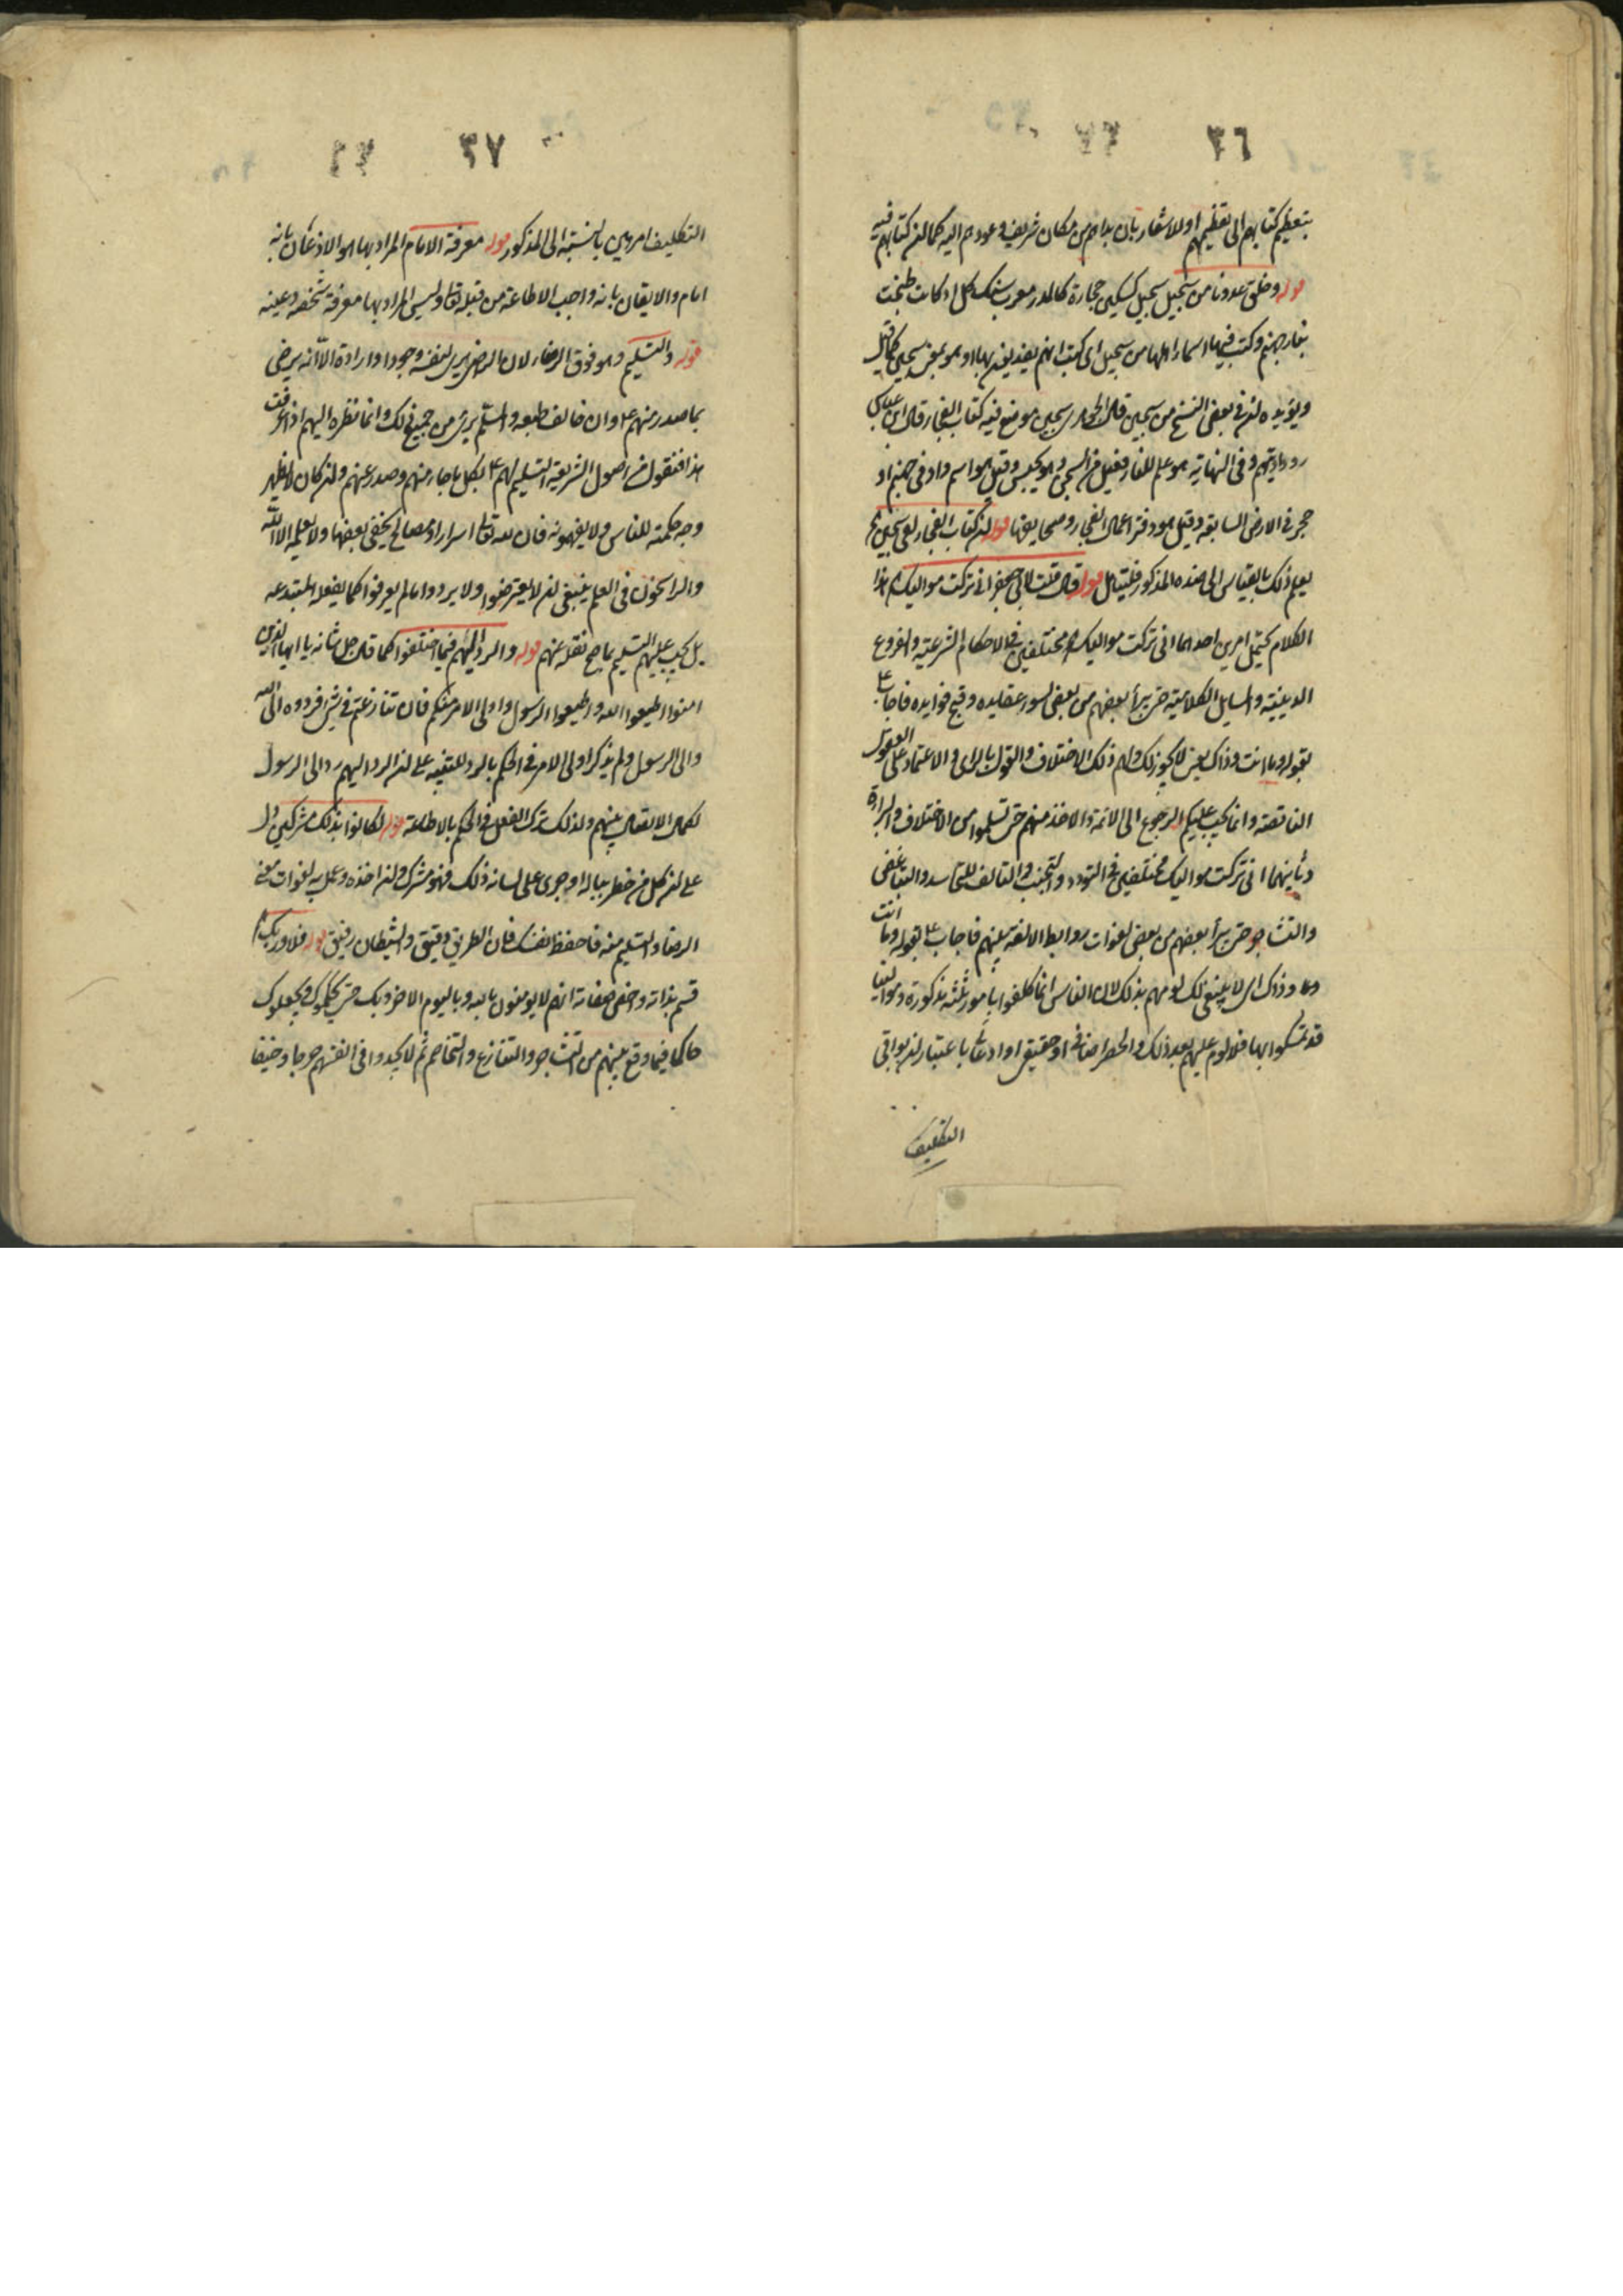 ٣٦
بتعظيم كتابهم الى تعظيمهم او للاشعار بان بداهم من مكان شريف وعودهم اليه كما ان كتابهم فيه
قوله وخلق عدونا من سجيل سجيل كسكين حجارة كالمدر معرب سنك كل او كانت طبخت
بنار جهنم وكتب فيها اسماء اهلها من سجيل اى كتب انهم يعذبون بها او هو بمعنى سجين كما قيل
ويؤيده ان في بعض النسخ من سجين قال الجوهرى سجين موضع فيه كتاب الفجار قال ابن عباس
ودواوينهم وفى النهاية هو علم للنار فعيل من السجن وهو الحبس وقيل هو اسم واد فى جهنم او
حجر فى الارض السابعة وقيل هو دفتر اعمال الفجار وصحايفها قوله ان كتاب الفجار لفى سجين
يعلم ذلك بالقياس الى ضده المذكور فليتامل قوله قال قلت لابى جعفر انى تركت مواليك هذا
الكلام يحتمل امرين احدهما انى تركت مواليك مختلفين فى الاحكام الشرعية والفروع
الدينية والمسايل الكلامية حتى يبرأ بعضهم من بعض لسوء عقايده وقبح فوايده فاجاب ع
بقوله وما انت وذاك يعنى لا يجوز لك ولهم ذلك الاختلاف والقول بالراى والاعتماد على العقول
الناقصة وانما يجب عليكم الرجوع الى الائمة والاخذ منهم حتى تسلموا من الاختلاف والبراءة
وثانيهما انى تركت مواليك مختلفين فى التودد والتجنب والتالف للتحاسد والتباغض
والتشاجر حتى يبرأ بعضهم من بعض لفوات روابط الالفة بينهم فاجاب ع بقوله وما انت
وذاك اى لا ينبغى لك لومهم بذلك لان الناس انما كلفوا بامور ثلثة مذكورة وموالينا
قد تمسكوا بها فلا لوم عليهم بعد ذلك والحصر اضافى او حقيقى او ادعائى باعتبار ان بواقى
التكليف
٣٧
التكليف امر هين بالنسبة الى المذكور قوله معرفة الامام المراد بها هو الاذعان بانه
امام والايقان بانه واجب الاطاعة من قبله تعالى وليس المراد بها معرفة شخصه وعينه
قوله والتسليم وهو فوق الرضاء لان الراضى يرى لنفسه وجودا وارادة الا انه يرضى
بما صدر منهم ع وان خالف طبعه والمسلم برئ من جميع ذلك وانما نظره اليهم اذا عرفت
هذا فنقول من اصول الشريعة التسليم لهم ع بكل ما جاء منهم وصدر عنهم وان كان لا يظهر
وجه حكمته للناس ولا يفهمونه فان لله تعالى اسرارا ومصالح يخفى بعضها ولا يعلمه الا الله
والراسخون فى العلم ينبغى ان لا يعترضوا ولا يردوا ما لم يعرفوا كما يفعله المبتدعه
بل يجب عليهم التسليم بما صح نقله عنهم قوله والرد اليهم فيما اختلفوا كما قال جل شانه يا ايها الذين
امنوا اطيعوا الله واطيعوا الرسول واولى الامر منكم فان تنازعتم فى شئ فردوه الى الله
والى الرسول ولم يذكر اولى الامر فى الحكم بالرد للتنبيه على ان الرد اليهم رد الى الرسول
لكمال الاتصال بينهم ولذلك ترك الفعل فى الحكم بالاطاعة قوله لكانوا بذلك مشركين دل
على ان كل من خطر بباله او جرى على لسانه ذلك فهو مشرك وان اخذه وعمل به لفوات معنى
الرضا والتسليم منه فاحفظ نفسك فان الطريق دقيق والشيطان رفيق قوله فلا وربك
قسم بذاته واخص صفاته انهم لا يومنون بالله وباليوم الاخر وبك حتى يحكموك ويجعلوك
حاكما فيما وقع بينهم من التشاجر والتنازع والتخاصم ثم لا يجدوا فى انفسهم حرجا وضيقا